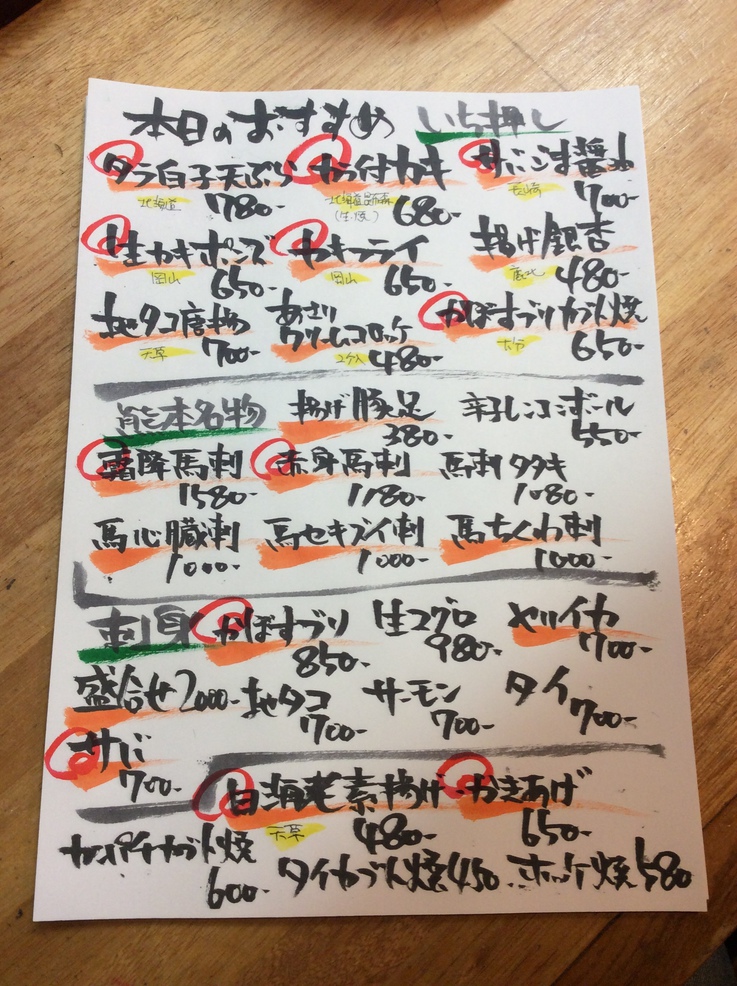 本日のおすすめ いち押し
タラ白子天ぷら カラ付カキ サバごま醤油
北海道 780- (生・焼) 680- 長崎 700-
生カキポンズ カキフライ 揚げ銀杏
岡山 650- 岡山 650- 480-
地タコ唐揚 あさりクリームコロッケ かぼすブリカブト焼
天草 700- 2ケ入 480- 大分 650-
熊本名物 揚げ豚足 辛子レンコンボール
380- 550-
霜降馬刺 赤身馬刺 馬刺タタキ
1580- 1180- 1080-
馬心臓刺 馬セキズイ刺 馬ちくわ刺
1000- 1000- 1000-
刺身 かぼすブリ 生マグロ ヤリイカ
850- 980- 700-
盛合せ2000- 地タコ サーモン タイ
700- 700- 700-
サバ
700-
白海老素揚げ かきあげ
天草 480- 650-
カンパチカブト焼 タイカブト焼450- ホッケ焼580
600-